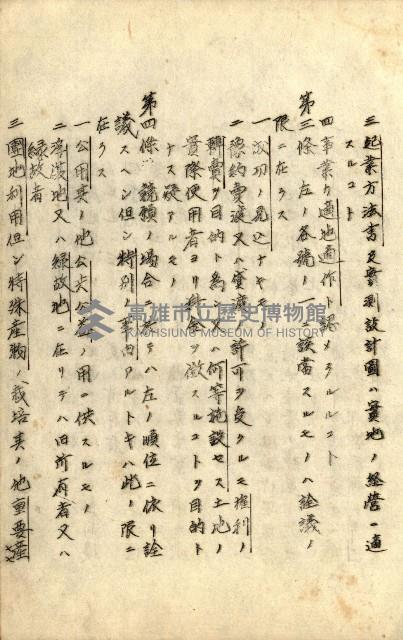 三 起業方法書及實測設計圖ハ實地ノ經營ニ適
スルコト
四 事業ガ適地適作ト認メラルルコト
第三條 左ノ各號ノ一ニ該當スルモノハ詮議ノ
限ニ在ラス
一 成功ノ見込ナキモノ
二 豫約賣渡又ハ貸渡許可ヲ受ケ其ノ權利ノ
轉賣ヲ目的ト為シ又ハ何等施設セス土地ノ
實際使用者ヨリ料金ヲ徴スルコトヲ目的ト
ナス疑アルモノ
第四條 競願ノ場合ニ於テハ左ノ順位ニ依リ詮
議スヘシ但シ特別ノ事由アルトキハ此ノ限ニ
在ラス
一 公用其ノ他公共公益ノ用ニ供スルモノ
二 浮復地又ハ緣故地ニ在リテハ旧所有者又ハ
緣故者
三 團地利用但シ特殊產物ノ栽培其ノ他重要產
高雄市立歷史博物館
KAOHSIUNG MUSEUM OF HISTORY